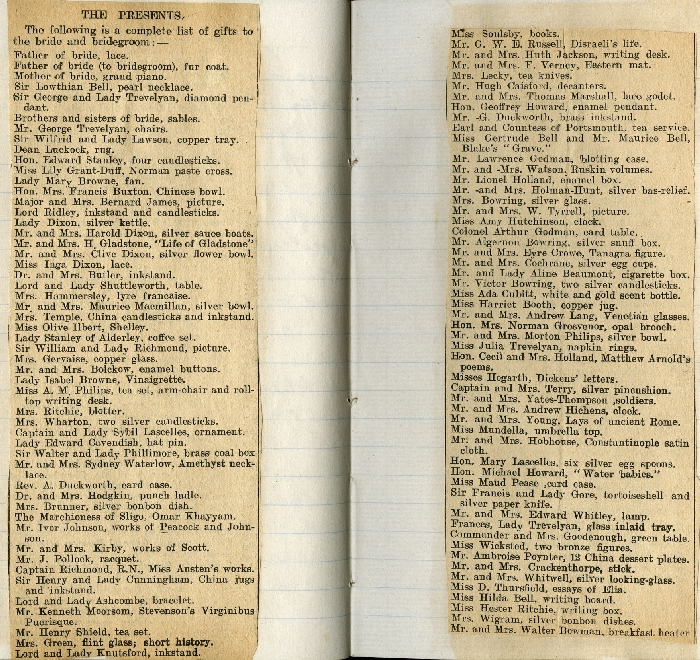 THE PRESENTS.
The following is a complete list of gifts to
the bride and bridegroom:—
Father of bride, lace.
Father of bride (to bridegroom), fur coat.
Mother of bride, grand piano.
Sir Lowthian Bell, pearl necklace.
Sir George and Lady Trevelyan, diamond pen-
dant.
Brothers and sisters of bride, sables.
Mr. George Trevelyan, chairs.
Sir Wilfrid and Lady Lawson, copper tray.
Dean Luckock, rug.
Hon. Edward Stanley, four candlesticks.
Miss Lily Grant-Duff, Norman paste cross.
Lady Mary Browne, fan.
Hon. Mrs. Francis Buxton, Chinese bowl.
Major and Mrs. Bernard James, picture.
Lord Ridley, inkstand and candlesticks.
Lady Dixon, silver kettle.
Mr. and Mrs. Harold Dixon, silver sauce boats.
Mr. and Mrs. H. Gladstone, "Life of Gladstone"
Mr. and Mrs. Clive Dixon, silver flower bowl.
Miss Inga Dixon, lace.
Dr. and Mrs. Butler, inkstand.
Lord and Lady Shuttleworth, table.
Mrs. Hammersley, lyre francaise.
Mr. and Mrs. Maurice Macmillan, silver bowl.
Mrs. Temple, China candlesticks and inkstand.
Miss Olive Ilbert, Shelley.
Lady Stanley of Alderley, coffee set.
Sir William and Lady Richmond, picture.
Mrs. Gervaise, copper glass.
Mr. and Mrs. Bolckow, enamel buttons.
Lady Isabel Browne, Vinaigrette.
Miss A. M. Philips, tea set, arm-chair and roll-
top writing desk.
Mrs. Ritchie, blotter.
Mrs. Wharton, two silver candlesticks.
Captain and Lady Sybil Lascelles, ornament.
Lady Edward Cavendish, hat pin.
Sir Walter and Lady Phillimore, brass coal box
Mr. and Mrs. Sydney Waterlow, Amethyst neck-
lace.
Rev. A. Duckworth, card case.
Dr. and Mrs. Hodgkin, punch ladle.
Mrs. Brunner, silver bonbon dish.
The Marchioness of Sligo, Omar Khayyam.
Mr. Ivor Johnson, works of Peacock and John-
son.
Mr. and Mrs. Kirby, works of Scott.
Mr. J. Pollock, racquet.
Captain Richmond, R.N., Miss Austen's works.
Sir Henry and Lady Cunningham, China jugs
and inkstand.
Lord and Lady Ashcombe, bracelet.
Mr. Kenneth Moorsom, Stevenson's Virginibus
Puerisque.
Mr. Henry Shield, tea set.
Mrs. Green, flint glass; short history.
Lord and Lady Knutsford, inkstand.
Miss Soulsby, books.
Mr. G. W. E. Russell, Disraeli's life.
Mr. and Mrs. Huth Jackson, writing desk.
Mr. and Mrs. F. Verney, Eastern mat.
Mrs. Lecky, tea knives.
Mr. Hugh Caisford, decanters.
Mr. and Mrs. Thomas Marshall, lace godet.
Hon. Geoffrey Howard, enamel pendant.
Mr. G. Duckworth, brass inkstand.
Earl and Countess of Portsmouth, tea service.
Miss Gertrude Bell and Mr. Maurice Bell,
Blake's "Grave."
Mr. Lawrence Godman, blotting case.
Mr. and Mrs. Watson, Ruskin volumes.
Mr. Lionel Holland, enamel box.
Mr. and Mrs. Holman-Hunt, silver bas-relief.
Mrs. Bowring, silver glass.
Mr. and Mrs. W. Tyrrell, picture.
Miss Amy Hutchinson, clock.
Colonel Arthur Godman, card table.
Mr. Algernon Bowring, silver snuff box.
Mr. and Mrs. Eyre Crowe, Tanagra figure.
Mr. and Mrs. Cochrane, silver egg cups.
Mr. and Lady Aline Beaumont, cigarette box.
Mr. Victor Bowring, two silver candlesticks.
Miss Ada Cubitt, white and gold scent bottle.
Miss Harriet Booth, copper jug.
Mr. and Mrs. Andrew Lang, Venetian glasses.
Hon. Mrs. Norman Grosvenor, opal brooch.
Mr. and Mrs. Morton Philips, silver bowl.
Miss Julia Trevelyan, napkin rings.
Hon. Cecil and Mrs. Holland, Matthew Arnold's
poems.
Misses Hogarth, Dickens' letters.
Captain and Mrs. Terry, silver pincushion.
Mr. and Mrs. Yates-Thompson ,soldiers.
Mr. and Mrs. Andrew Hichens, clock.
Mr. and Mrs. Young, Lays of ancient Rome.
Miss Mundella, umbrella top.
Mr. and Mrs. Hobhouse, Constantinople satin
cloth.
Hon. Mary Lascelles, six silver egg spoons.
Hon. Michael Howard, "Water babies."
Miss Maud Pease ,card case.
Sir Francis and Lady Gore, tortoiseshell and
silver paper knife.
Mr. and Mrs. Edward Whitley, lamp.
Frances, Lady Trevelyan, glass inlaid tray.
Commander and Mrs. Goodenough, green table.
Miss Wicksted, two bronze figures.
Mr. Ambrose Poynter, 12 China dessert plates.
Mr. and Mrs. Crackenthorpe, stick.
Mr. and Mrs. Whitwell, silver looking-glass.
Miss D. Thursfield, essays of Elia.
Miss Hilda Bell, writing board.
Miss Hester Ritchie, writing box.
Mrs. Wigram, silver bonbon dishes.
Mr. and Mrs. Walter Bowman, breakfast heater